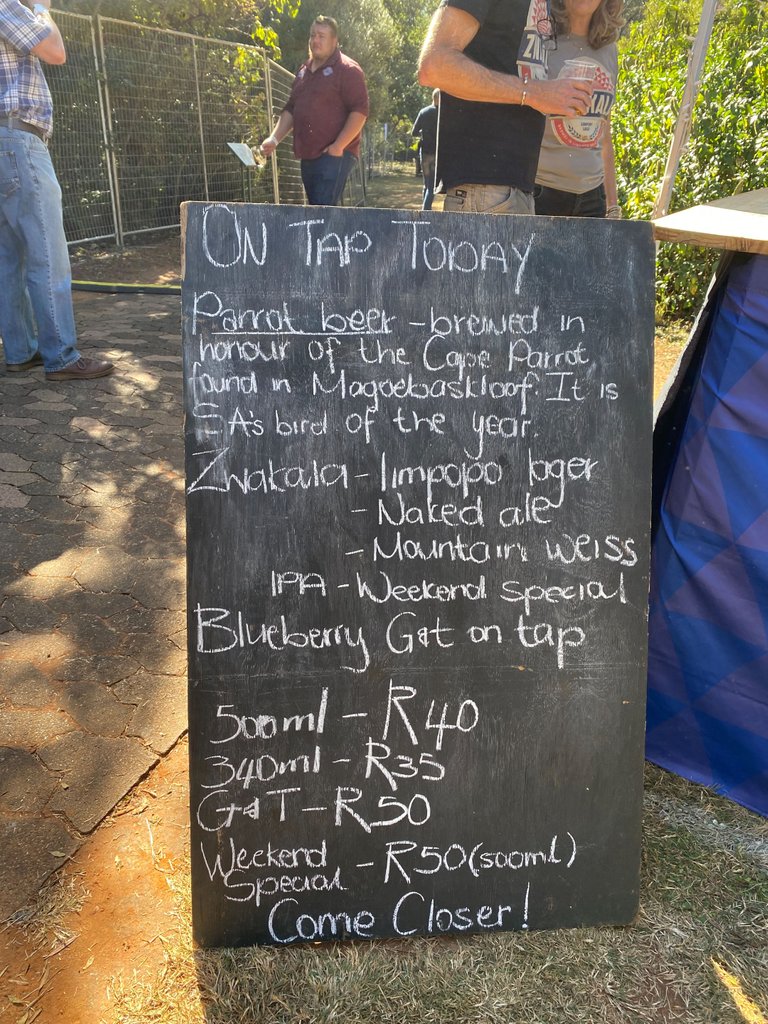 ON TAP TODAY
Parrot beer - brewed in
honour of the Cape Parrot
found in Magoebaskloof. It is
SA's bird of the year.
Zwakala - limpopo lager
- Naked ale
- Mountain weiss
IPA - Weekend special
Blueberry G&t on tap
500ml - R40
340ml - R35
G&T - R50
Weekend Special - R50 (500ml)
Come Closer!